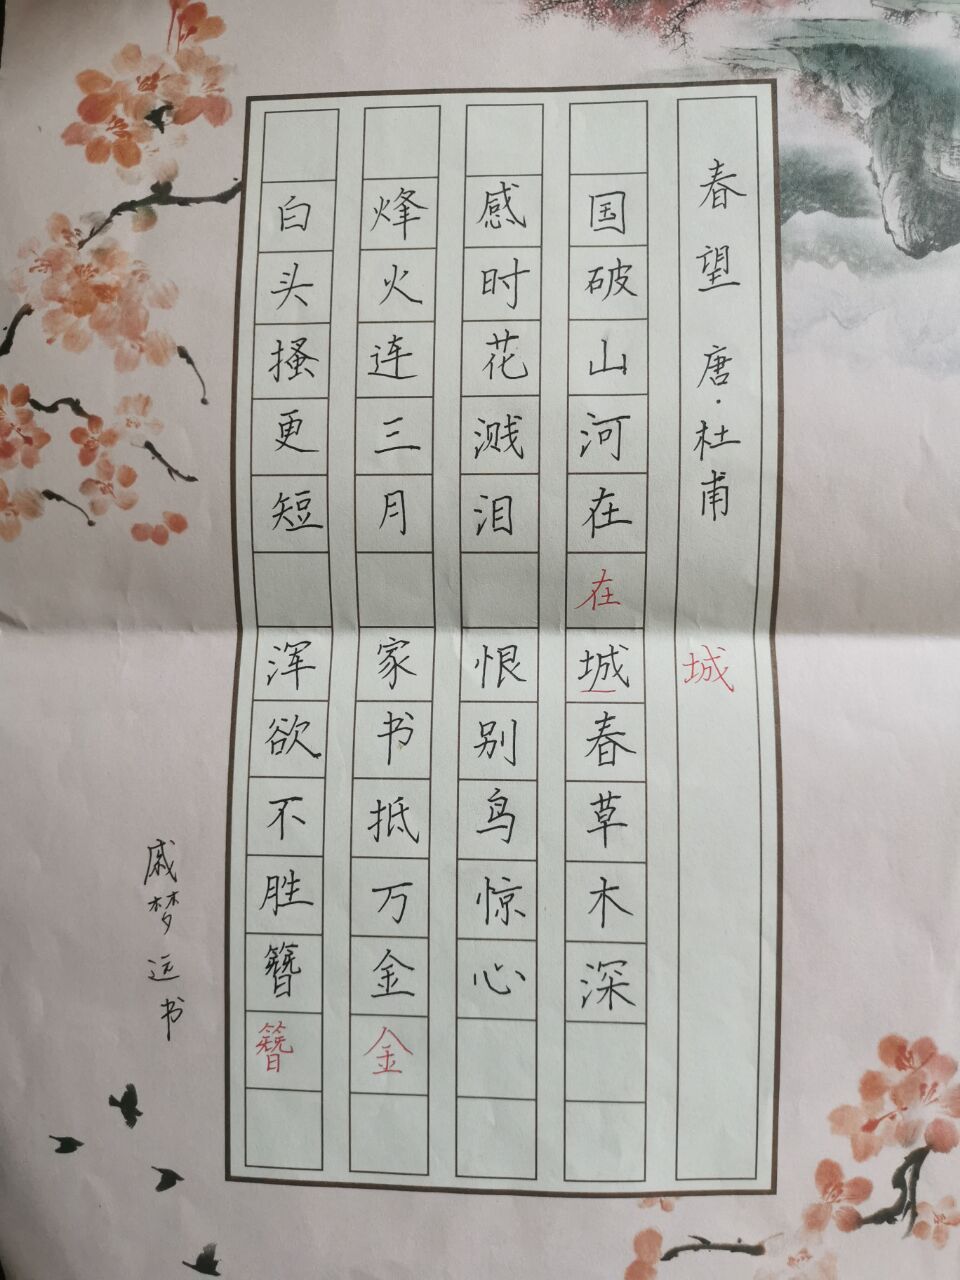 春望 唐·杜甫 城
国破山河在在城春草木深
感时花溅泪恨别鸟惊心
烽火连三月家书抵万金金
白头搔更短浑欲不胜簪簪
戚梦运书